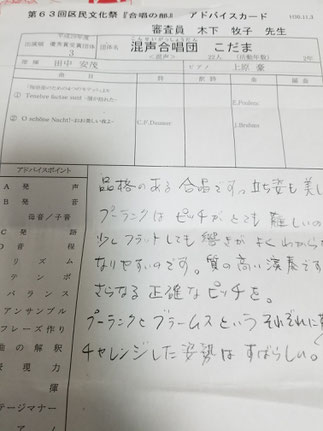 第63回区民文化祭『合唱の部』 アドバイスカード
審査員 木下 牧子 先生
出演順
3
団体名
混声合唱団 こだま
<混声>
指揮
田中 安茂
ピアノ
上原 豪
曲
作詞
作曲
編曲
①
Tenebrae factae sunt
E.Poulenc
②
O schöne Nacht!
G.F.Daumer
J.Brahms
アドバイスポイント
A 発声
B 発音
母音/子音
C 発語
D 音程
リズム
テンポ
バランス
アンサンブル
フレーズ作り
曲の解釈
表現力
指揮
ステージマナー
品格のある合唱です。立ち姿も美し
プーランクはピッチがとても難しいの
少しフラットしても響きがよくわから
なりやすいのです。質の高い演奏です
さらなる正確なピッチを。
プーランクとブラームスというそれぞれに
チャレンジした姿勢はすばらしい。